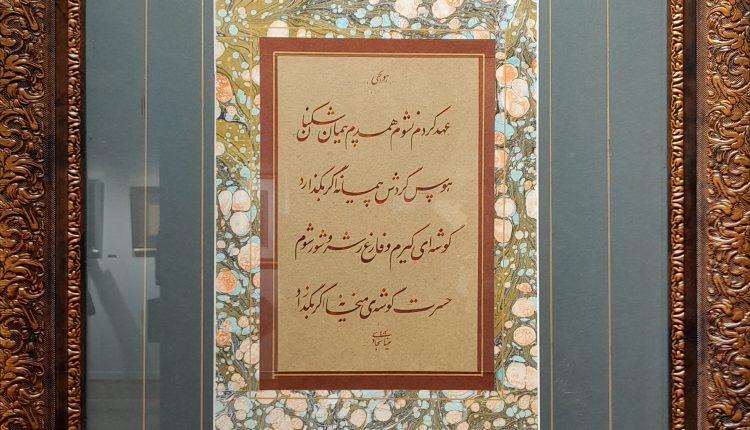 عهد کردم نشوم همدم پیمان شکنان
هوس گردش پیمانه اگر بگذارد
گوشه‌ای گیرم و فارغ ز شر و شور شوم
حسرت گوشه‌ی میخانه اگر بگذارد